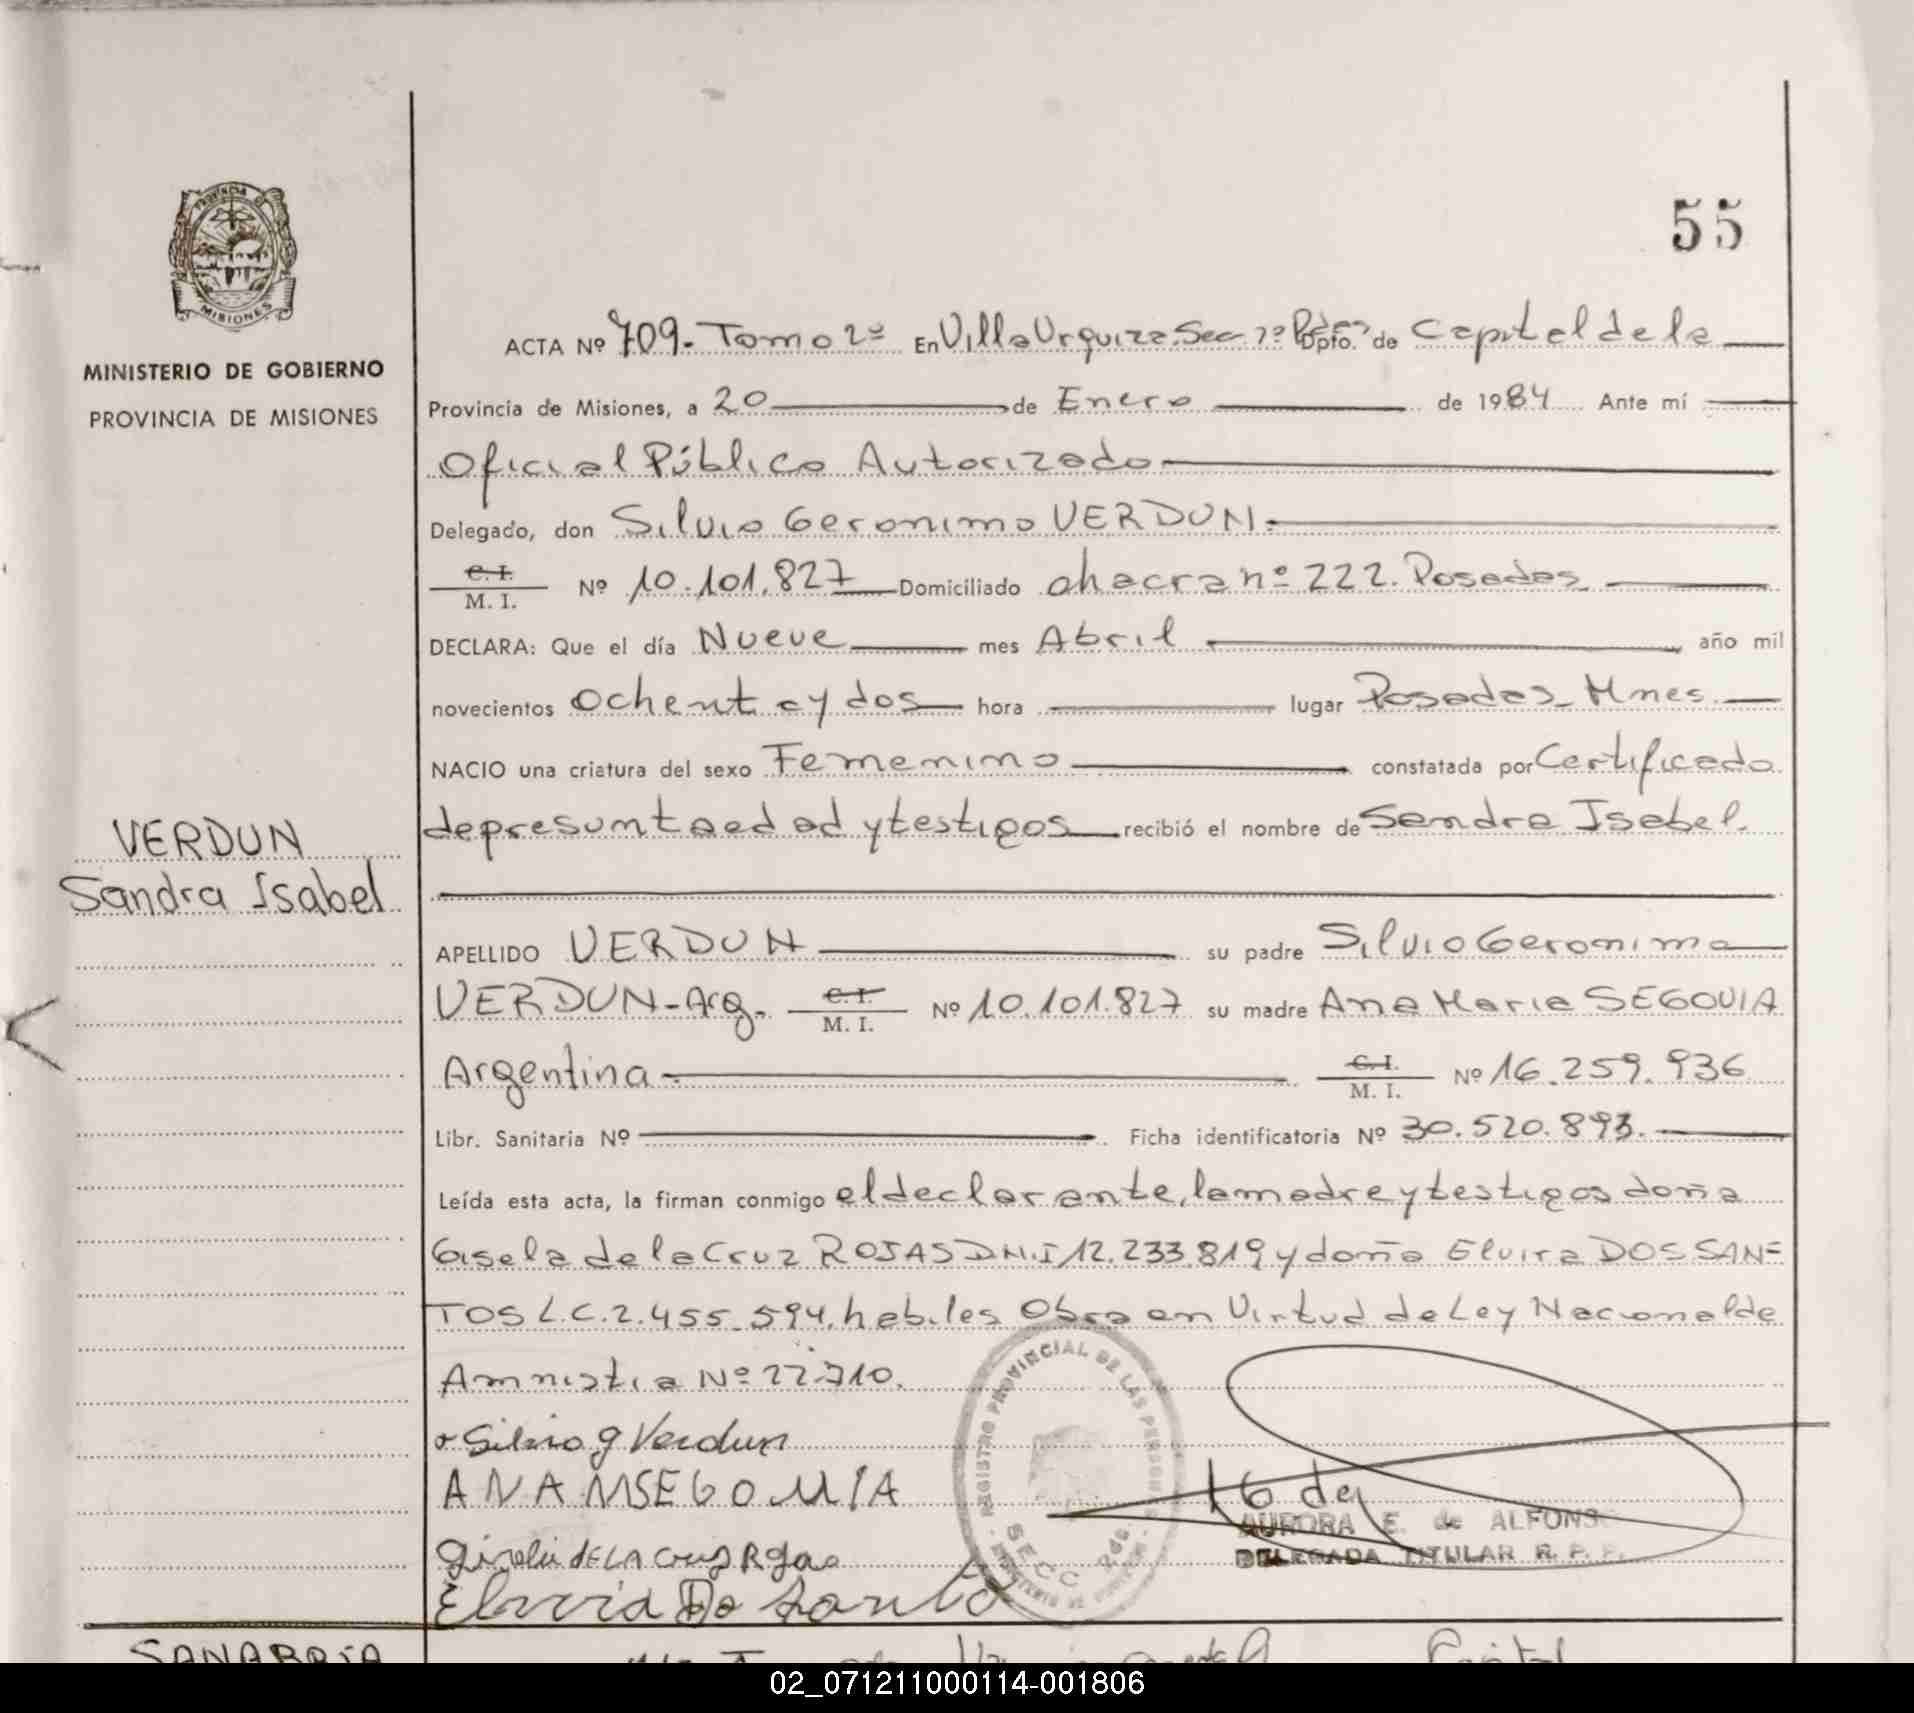 55
PROVINCIA DE
MISIONES
MINISTERIO DE GOBIERNO
PROVINCIA DE MISIONES
VERDUN
Sandra Isabel
ACTA Nº 709. Tomo 2º En Villa Urquiza. Sec 7ª Pdas. Dpto. de Capital de la
Provincia de Misiones, a 20 de Enero de 1984 Ante mí
Oficial Público Autorizado
Delegado, don Silvio Geronimo VERDUN.
C. I.
M. I. Nº 10.101.827 Domiciliado chacra nº 222. Posadas
DECLARA: Que el día Nueve mes Abril año mil
novecientos ochenta y dos hora lugar Posadas Mnes.
NACIO una criatura del sexo Femenino constatada por Certificado
de presunta edad y testigos recibió el nombre de Sandra Isabel.
APELLIDO VERDUN su padre Silvio Geronimo
VERDUN-Arg. C. I. M. I. Nº 10.101.827 su madre Ana Maria SEGOVIA
Argentina C. I. M. I. Nº 16.259.936
Libr. Sanitaria Nº Ficha identificatoria Nº 30.520.893.
Leída esta acta, la firman conmigo el declarante, la madre y testigos doña
Gisela de la Cruz ROJAS D.N.I 12.233.819 y doña Elvira DOS SAN=
TOS L.C. 2.455.594. habiles Obra en Virtud de Ley Nacional de
Amnistia Nº 22.710.
Silvio g Verdun
ANA M SEGOVIA
DE LA Cruz Rojas
Elvira Do Santo
REGISTRO PROVINCIAL DE LAS PERSONAS
SECC
16 de
AURORA E. de ALFONSO
DELEGADA TITULAR R. P. P.
SANABRIA
Capital
02_071211000114-001806